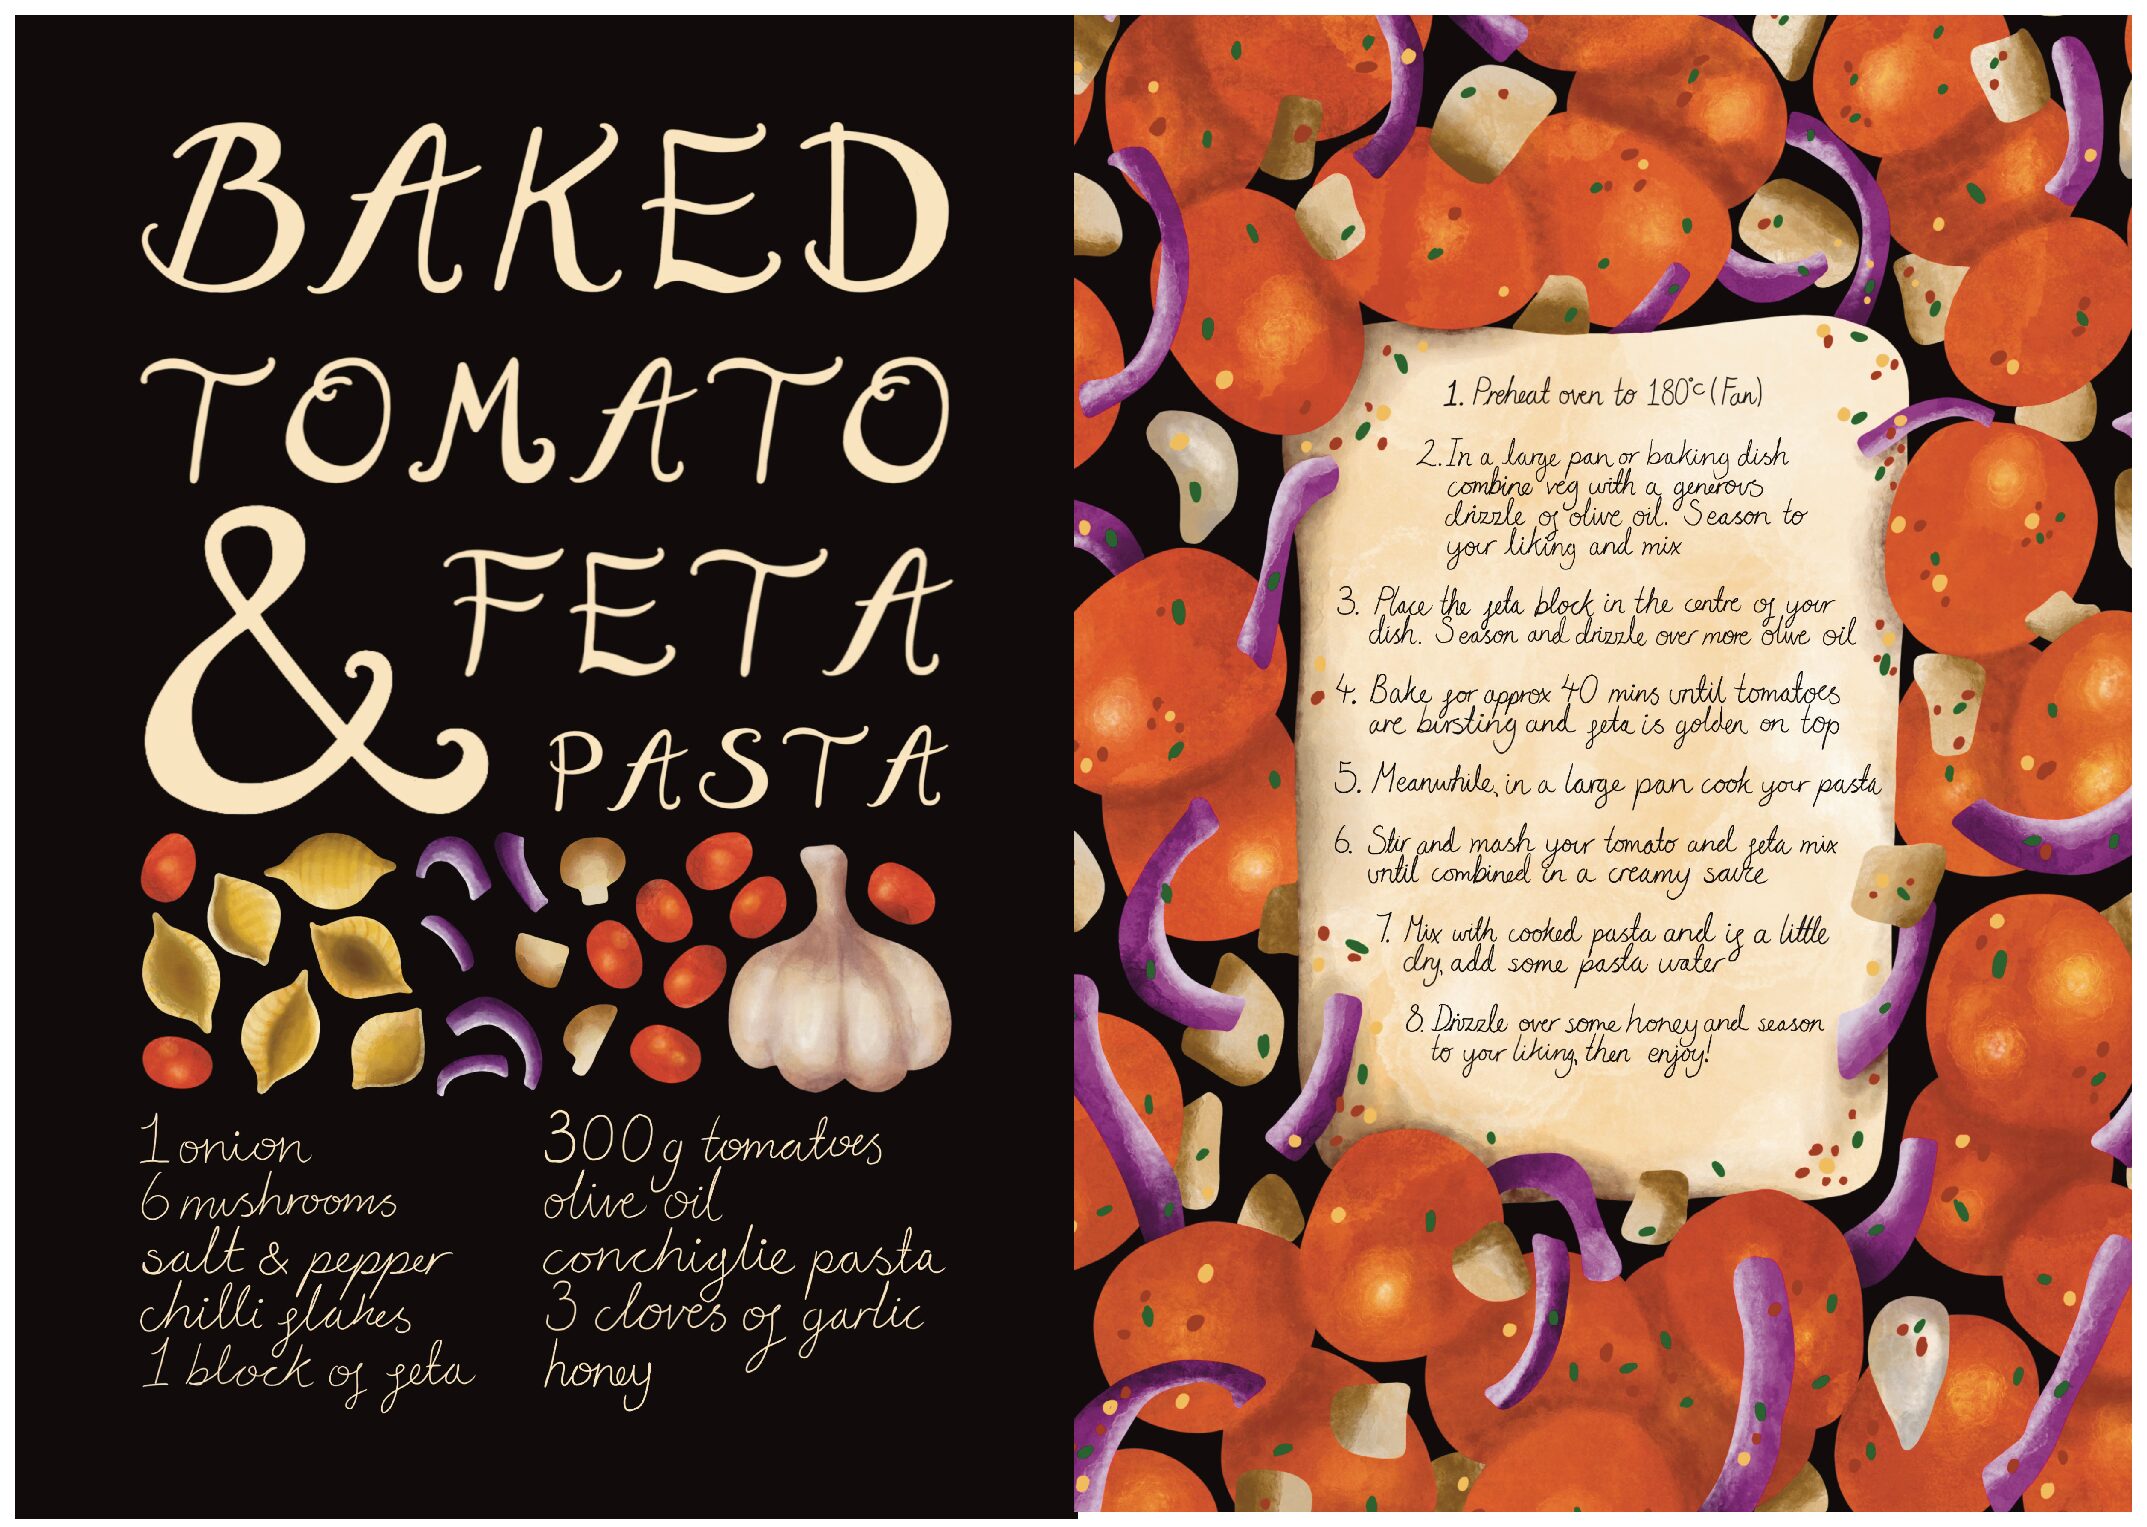 BAKED
TOMATO
& FETA
PASTA
1 onion
6 mushrooms
salt & pepper
chilli flakes
1 block of feta
300g tomatoes
olive oil
conchiglie pasta
3 cloves of garlic
honey
1. Preheat oven to 180°c (Fan)
2. In a large pan or baking dish
combine veg with a generous
drizzle of olive oil. Season to
your liking and mix
3. Place the feta block in the centre of your
dish. Season and drizzle over more olive oil
4. Bake for approx 40 mins until tomatoes
are bursting and feta is golden on top
5. Meanwhile, in a large pan cook your pasta
6. Stir and mash your tomato and feta mix
until combined in a creamy sauce
7. Mix with cooked pasta and if a little
dry, add some pasta water
8. Drizzle over some honey and season
to your liking, then enjoy!